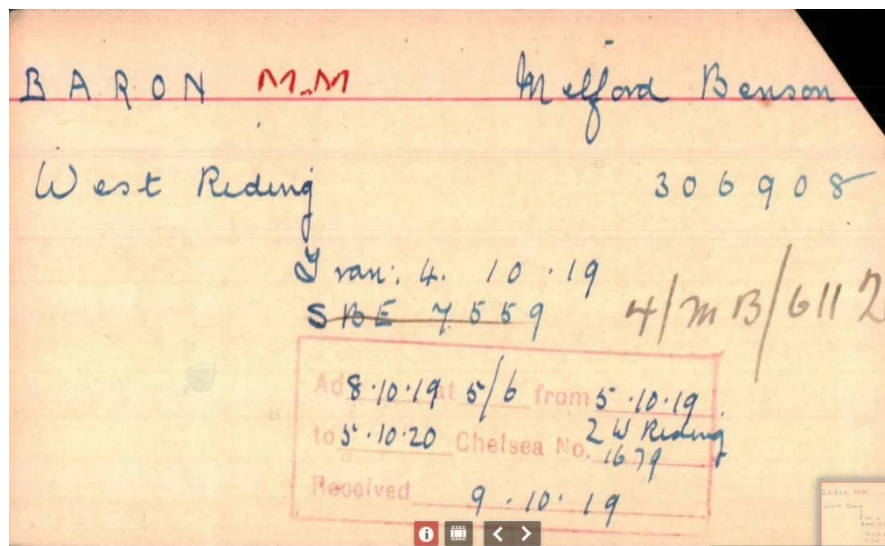 BARON M.M Milford Benson
West Riding 306908
Tran: 4. 10 . 19
SBE 7559 4/MB/6112
Ad 8.10.19 at 5/6 from 5.10.19
to 5.10.20 Chelsea No. 2 W Riding
1679
Received 9.10.19